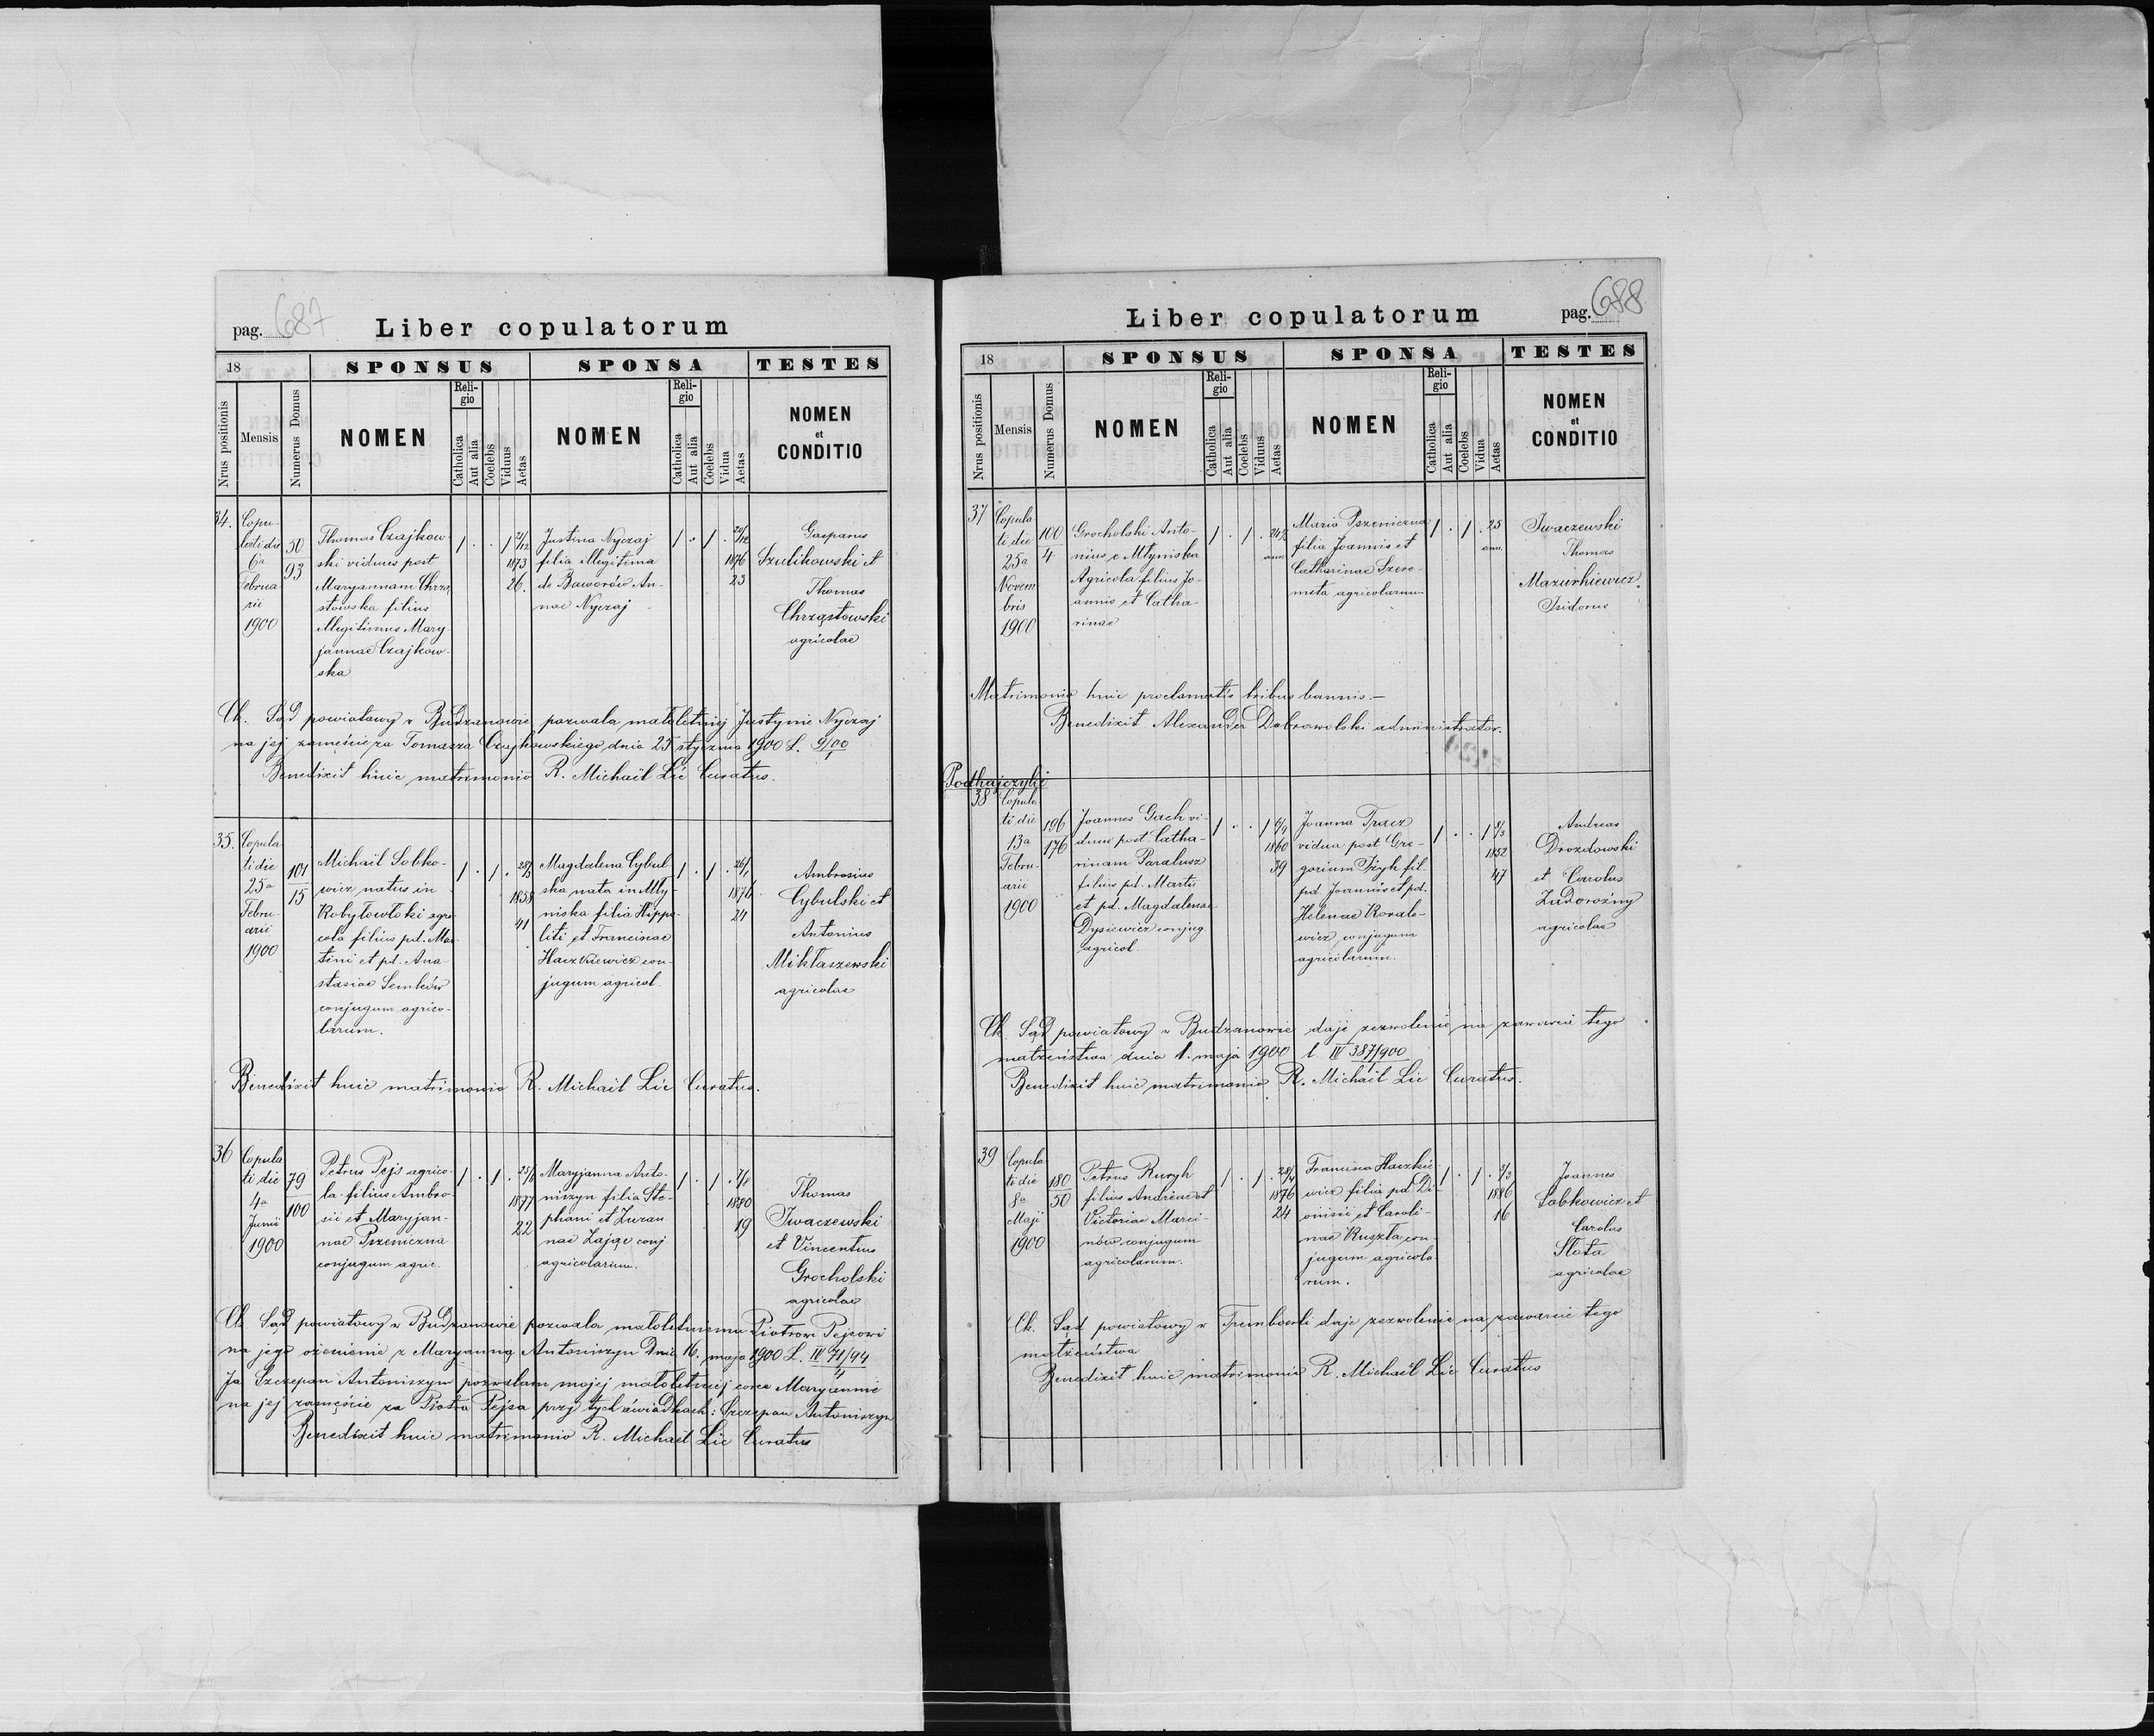 pag. 687
Liber copulatorum
18
SPONSUS
SPONSA
TESTES
Nrus positionis
Mensis
Numerus Domus
NOMEN
Reli-
gio
Catholica
Aut alia
Coelebs
Viduus
Aetas
NOMEN
Reli-
gio
Catholica
Aut alia
Coelebs
Vidua
Aetas
NOMEN
et
CONDITIO
34.
Copu-
lati die
6a
Februa
rii
1900
50
93
Thomas Czajkow-
ski viduus post
Maryannam Chrzą
stowska filius
illegitimus Mary-
jannae Czajkow-
ska
1 . . 1
2/12
1873
26.
Justina Nyczaj
filia illegitima
de Baworów An-
nae Nyczaj
1 . 1 .
1876
23
Gasparus
Szulikowski et
Thomas
Chrząstowski
agricolae
Ck. Sąd powiatowy w Budzanowie pozwala małoletniej Justynie Nyczaj
na jej zamęście za Tomasza Czajkowskiego dnia 25 stycznia 1900 L. 9/00
Benedixit huic matrimonio R. Michaël Lic Curatus.
35.
Copula
ti die
25a
Febru-
arii
1900
101
15
Michaël Sobko-
wicz natus in
Kobyłowłoki agri
cola filius pd. Mar-
tini et pd. Ana
stasiae Semków
conjugum agrico-
larum.
1 . 1 .
28/3
1858
41
Magdalena Cybul
ska nata in Mły-
niska filia Hippo-
liti et Franciscae
Haczkiewicz con-
jugum agricol.
1 . 1 .
26/1
1876
24
Ambrosius
Cybulski et
Antonius
Miklaszewski
agricolae
Benedixit huic matrimonio R. Michaël Lic Curatus.
36
Copula
ti die
4a
Junii
1900
79
100
Petrus Pejs agrico-
la filius Ambro-
sii et Maryjan-
nae Pszeniczna
conjugum agric.
1 . 1 .
1877
22
Maryjanna Anto-
niszyn filia Ste-
phani et Zuzan
nae Zając conj
agricolarum.
1 . 1 .
1880
19
Thomas
Iwaczewski
et Vincentius
Grocholski
agricolae
Ck. Sąd powiatowy w Budzanowie pozwala małoletniemu Piotrowi Pejsowi
na jego ożenienie z Maryanną Antoniszyn Dnia 16. maja 1900 L. IV 71/94
4
Ja Szczepan Antoniszyn pozwalam mojej małoletniej córce Maryannie
na jej zamęście za Piotra Pejsa przy tych świadkach: Szczepan Antoniszyn
Benedixit huic matrimonio R. Michaël Lic Curatus
pag. 688
Liber copulatorum
18
SPONSUS
SPONSA
TESTES
Nrus positionis
Mensis
Numerus Domus
NOMEN
Reli-
gio
Catholica
Aut alia
Coelebs
Viduus
Aetas
NOMEN
Reli-
gio
Catholica
Aut alia
Coelebs
Vidua
Aetas
NOMEN
et
CONDITIO
37
Copula
ti die
25a
Novem
bris
1900
100
4
Grocholski Anto-
nius e Młyniska
Agricola filius Jo-
annis et Catha-
rinae
1 . 1 .
ann.
Maria Pszeniczna
filia Joannis et
Catharinae Szere-
meta agricolarum
1 . 1 .
25
ann.
Iwaczewski
Thomas
Mazurkiewicz
Isidorus
Matrimonio huic proclamatis tribus bannis.—
Benedixit Alexander Dobrowolski administrator.
Podhajczyki
38
Copula
ti die
13a
Febru-
arii
1900
196
176
Joannes Gach vi-
duus post Catha-
rinam Paralusz
filius pd. Marti
et pd. Magdalenae
Dysiewicz conjug.
agricol.
1 . . 1
6/9
1860
39
Joanna Tracz
vidua post Gre-
gorium fil.
pd. Joannis et pd.
Helenae Kowale-
wicz conjugum
agricolarum.
1 . . 1
8/3
1852
47
Andreas
Drozdowski
et Carolus
Zadorożny
agricolae
Ck. Sąd powiatowy w Budzanowie daje zezwolenie na zawarcie tego
małżeństwa dnia 1. maja 1900 l. IV 387/900
1
Benedixit huic matrimonio R. Michaël Lic Curatus.
39
Copula
ti die
8a
Maji
1900
180
50
Petrus Kuryh
filius Andreae et
Victoriae Marci-
nów conjugum
agricolarum.
1 . 1 .
28/4
1876
24
Francisca Haczkie
wicz filia pd. Di-
onisii et Caroli-
nae Kuszta con-
jugum agricola
rum.
1 . 1 .
3/3
16
Joannes
Sobkowicz et
Carolus
Słota
agricolae
Ck. Sąd powiatowy w Trembowli daje zezwolenie na zawarcie tego
małżeństwa
Benedixit huic matrimonio R. Michaël Lic Curatus